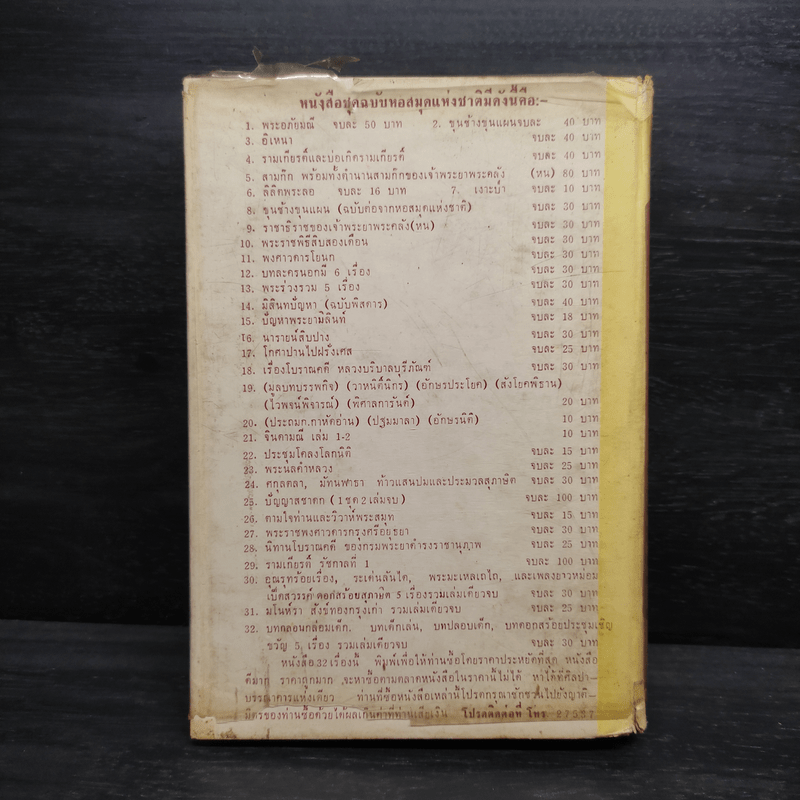 หนังสือชุดฉบับหอสมุดแห่งชาติมีดังนี้คือ:-
1. พระอภัยมณี จบละ 50 บาท 2. ขุนช้างขุนแผนจบละ 40 บาท
3. อิเหนา จบละ 40 บาท
4. รามเกียรติ์และบ่อเกิดรามเกียรติ์ จบละ 40 บาท
5. สามก๊ก พร้อมทั้งตำนานสามก๊กของเจ้าพระยาพระคลัง (หน) 80 บาท
6. ลิลิตพระลอ จบละ 16 บาท 7. เงาะป่า จบละ 10 บาท
8. ขุนช้างขุนแผน (ฉบับต่อจากหอสมุดแห่งชาติ) จบละ 30 บาท
9. ราชาธิราชของเจ้าพระยาพระคลัง(หน) จบละ 30 บาท
10. พระราชพิธีสิบสองเดือน จบละ 30 บาท
11. พงศาวดารโยนก จบละ 30 บาท
12. บทละครนอกมี 6 เรื่อง จบละ 30 บาท
13. พระร่วงรวม 5 เรื่อง จบละ 30 บาท
14. มิลินทปัญหา (ฉบับพิสดาร) จบละ 40 บาท
15. ปัญหาพระยามิลินท์ จบละ 18 บาท
16. นารายณ์สิบปาง จบละ 30 บาท
17. โกศาปานไปฝรั่งเศส จบละ 25 บาท
18. เรื่องโบราณคดี หลวงบริบาลบุรีภัณฑ์ จบละ 30 บาท
19. (มูลบทบรรพกิจ) (วาหนิติ์นิกร) (อักษรประโยค) (สังโยคพิธาน)
(ไวพจน์พิจารณ์) (พิศาลการันต์) 20 บาท
20. (ประถมก.กาหัดอ่าน) (ปฐมมาลา) (อักษรนิติ) 10 บาท
21. จินดามณี เล่ม 1-2 10 บาท
22. ประชุมโคลงโลกนิติ จบละ 15 บาท
23. พระนลคำหลวง จบละ 25 บาท
24. ศกุลตลา, มัทนพาธา ท้าวแสนปมและประมวลสุภาษิต จบละ 30 บาท
25. ปัญญาสชาดก (1 ชุด 2 เล่มจบ) จบละ 100 บาท
26. ตามใจท่านและวิวาห์พระสมุท จบละ 15 บาท
27. พระราชพงศาวดารกรุงศรีอยุธยา จบละ 30 บาท
28. นิทานโบราณคดี ของกรมพระยาดำรงราชานุภาพ จบละ 25 บาท
29. รามเกียรติ์ รัชกาลที่ 1 จบละ 100 บาท
30. อุณรุทร้อยเรื่อง, ระเด่นลันได, พระมะเหลเถไถ, และเพลงยาวหม่อม
เป็ดสวรรค์ ดอกสร้อยสุภาษิต 5 เรื่องรวมเล่มเดียวจบ จบละ 30 บาท
31. มโนห์รา สังข์ทองกรุงเก่า รวมเล่มเดียวจบ จบละ 25 บาท
32. บทกล่อมกล่อมเด็ก, บทเด็กเล่น, บทปลอบเด็ก, บทดอกสร้อยประชุมเชิญ
ขวัญ 5 เรื่อง รวมเล่มเดียวจบ จบละ 30 บาท
หนังสือ 32 เรื่องนี้ พิมพ์เพื่อให้ท่านซื้อโดยราคาประหยัดที่สุด หนังสือ
ดีมาก ราคาถูกมาก จะหาซื้อตามตลาดหนังสือในราคานี้ไม่ได้ หาได้ที่ศิลปา-
บรรณาคารแห่งเดียว ท่านที่ซื้อหนังสือเหล่านี้โปรดกรุณาชักชวนไปยังญาติ-
มิตรของท่านซื้อด้วยได้ผลเกินค่าที่ท่านเสียเงิน โปรดติดต่อที่ โทร 27537